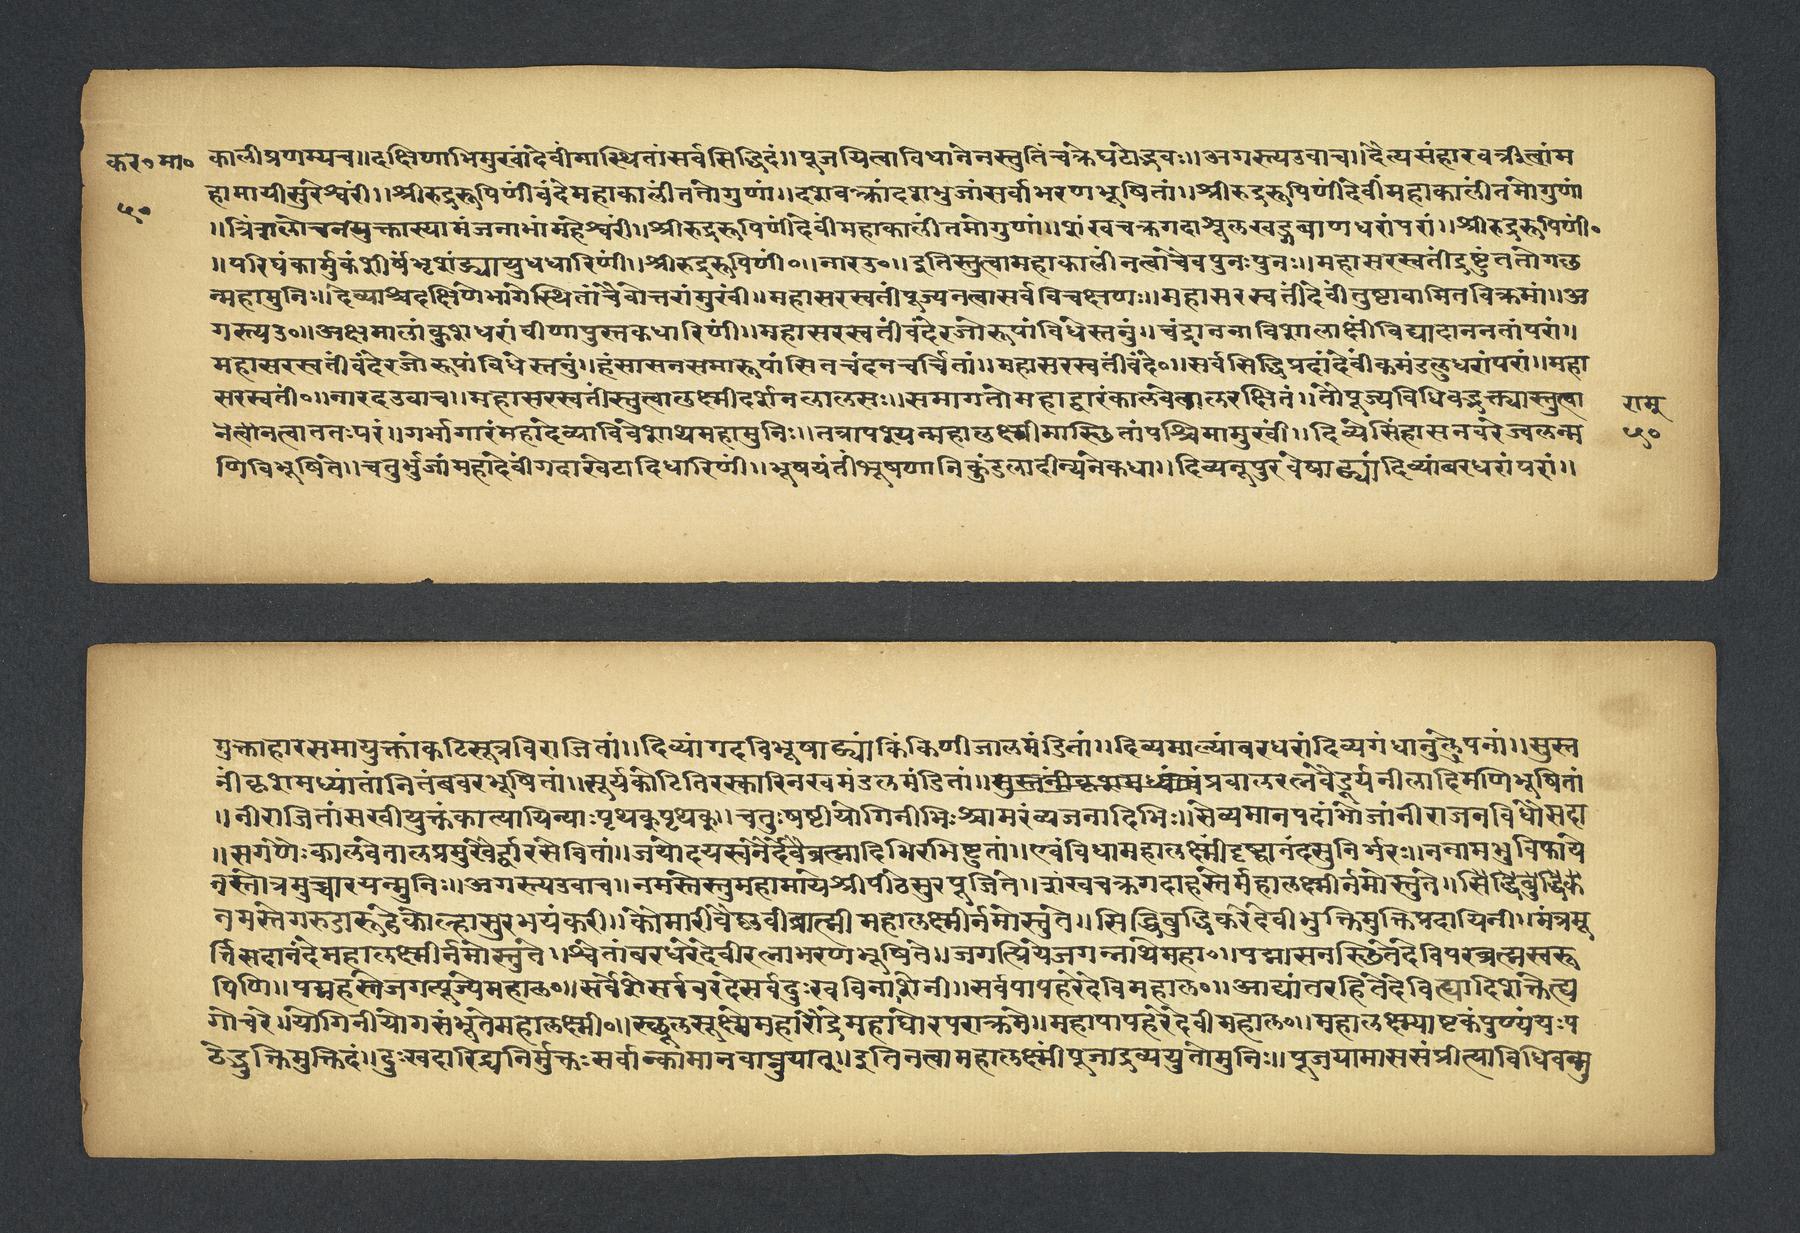 कर०मा० कालीप्रणम्यच॥दक्षिणाभिमुखांदेवींगास्थितांसर्वसिद्धिदं॥पुजयित्वाविधानेनस्तुतिंचक्रेघटोद्भवः॥अगस्त्यउवाच॥दैत्यसंहारवत्रीत्वांम
५० हामायीसुरेश्वरीं॥श्रीरुद्ररूपिणींवंदेमहाकालींततोगुणां॥दशवक्त्रांदशभुजांसर्वाभरणभूषितां॥श्रीरुद्ररूपिणींदेवींमहाकालींतमोगुणां
॥त्रिंशल्लोचनसुक्तास्यामंजनाभांमहेश्वरीं॥श्रीरुद्ररूपिणींदेवींमहाकालींतमोगुणां॥शंखचक्रगदाश्रुलखड्गबाणधरांपरां॥श्रीरुद्ररूपिणीं०
॥परिघंकार्मुकंशीर्षंभृशंड्यायुधधारिणीं॥श्रीरुद्ररूपिणीं०॥नारउ०॥इतिस्तुत्वामहाकालींनत्वाचैवपुनःपुनः॥महासरस्वतींद्रुष्टुंततोगछ
न्महामुनिः॥देव्याश्चदक्षिणेभागेस्थितांचैवोत्तरांमुखीं॥महासरस्वतींपूज्यनत्वासर्वविचक्षणः॥महासरस्वतींदेवींतुष्टावामितविक्रमां॥अ
गस्त्यउ०॥अक्षमालांकुशधरांवीणापुस्तकधारिणीं॥महासरस्वतींवंदेरजोरूपांविधेस्तनुं॥चंद्राननाविशालाक्षींविद्यादाननतांपरां॥
महासरस्वतींवंदेरजोरूपांविधेस्तनुं॥हंसासनसमारूपांसितचंदनचर्चितां॥महासरस्वतींवंदे०॥सर्वसिद्धिप्रदांदेवींकमंडलुधरांपरां॥महा
सरस्वतीं०॥नारदउवाच॥महासरस्वतींस्तुत्वालक्ष्मीदर्शनलालसः॥समागतोमहाद्वारंकालवेतालरक्षितं॥तौपूज्यविधिवद्भक्त्यास्तुत्वा
नेत्वानत्वाततःपरं॥गर्भागारंमहादेव्याविवेशाथमहामुनिः॥तत्रापश्यन्महालक्ष्मीमास्छितांपश्चिमामुखीं॥दिव्येसिंहासनवरेज्वलन्म
णिविभूषिते॥चतुर्भुजांमहादेवींगदाखेटादिधारिणीं॥भूषयंतींभूषणानिकुंडलादीन्यनेकधा॥दिव्यनूपुरवेषाढ्यांदिव्यांबरधरांपरां॥
रामु
५०
मुक्ताहारसमायुक्तांकटिसूत्रविराजितां॥दिव्यांगदविभूषाढ्यांकिंकिणीजालमंडितां॥दिव्यमाल्यांवरधरांदिव्यगंधानुलेपनां॥सुस्त
नींकृशमध्यांतांनितंबवरभूषितां॥सूर्यकोटितिरस्कारिनखमंडलमंडितां॥प्रवालरत्नवैडूर्यनीलादिमणिभूषितां
॥नीराजितांसखीयुक्तंकात्यायिन्याःपृथक्पृथक्॥चतुःषष्टीयोगिनीभिःश्चामरंव्यजनादिभिः॥सेव्यमानपदांभोजांनीराजनविधौसदा
॥सगणैःकालवेतालप्रमुखैर्द्वारसेवितां॥जयोदयस्वनैर्देवैब्रह्मादिभिरभिष्टुतां॥एवंविधामहालक्ष्मींदृष्ट्वानंदसुनिर्भरः॥ननामभुविकाये
नस्तोत्रमुच्चारयन्मुनिः॥अगस्त्यउवाच॥नमस्तेस्तुमहामायेश्रीपीठेसुरपूजिते॥शंखचक्रगदाहस्तेर्महालक्ष्मीर्नमोस्तुते॥सिद्धिबुद्धिके
नमस्तेगरुडारूढेकोल्हासुरभयंकरी॥कौमारीवैष्णवीब्राह्मी महालक्ष्मीर्नमोस्तुते॥सिद्धिबुद्धिकरेदेवीभुक्तिमुक्तिप्रदायिनी॥मंत्रमू
र्त्तिसदानंदेमहालक्ष्मीर्नमोस्तुते॥श्वेतांबरधरेदेवीरत्नाभरणभूषिते॥जगत्प्रियेजगन्नाथेमहा०॥पद्मासनस्छितेदेविपरब्रह्मस्वरू
पिणि॥पद्महस्तेजगत्पूज्येमहाल०॥सर्वेशेसर्ववरदेसर्वदुःखविनाशिनी॥सर्वपापहरेदेविमहाल०॥आद्यांतरहितेदेवित्घादिशक्तित्घ
गोचरे॥योगिनीयोगसंभूतेमहालक्ष्मी०॥स्छूलसूक्ष्मेमहारौद्रेमहाघोरपराक्रमे॥महापापहरेदेवीमहाल०॥महालक्ष्म्याष्टकंपुण्यंयःप
ठेद्भुक्तिमुक्तिदं॥दुःखदारिद्र्यनिर्मुक्तःसर्वान्कामानवाप्नुयात्॥इतिनत्वामहालक्ष्मींपूजाद्रव्ययुतोमुनिः॥पूजयामाससंप्रीत्याविधिवन्मु